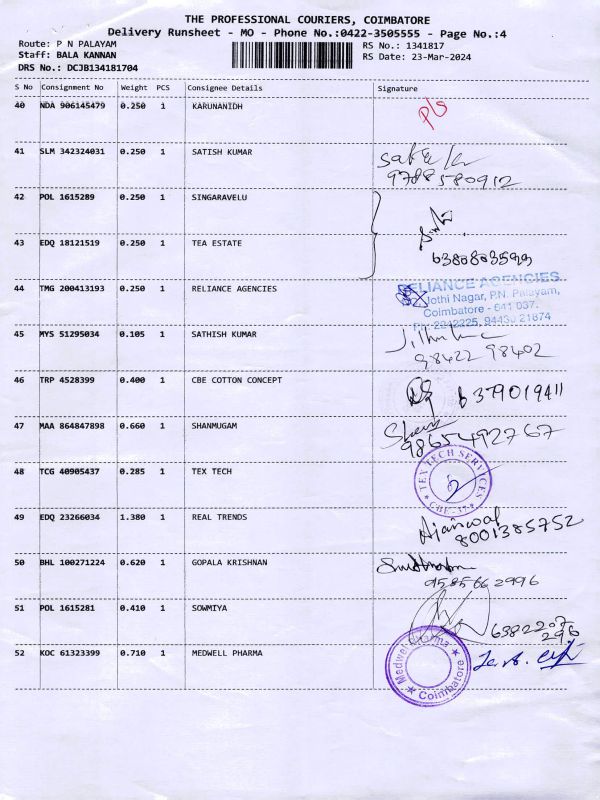 THE PROFESSIONAL COURIERS, COIMBATORE
Delivery Runsheet - MO - Phone No.:0422-3505555 - Page No.:4
Route: P N PALAYAM RS No.: 1341817
Staff: BALA KANNAN RS Date: 23-Mar-2024
DRS No.: DCJB134181704
S No Consignment No Weight PCS Consignee Details Signature
40 NDA 906145479 0.250 1 KARUNANIDH P/S
41 SLM 342324031 0.250 1 SATISH KUMAR
9788580912
42 POL 1615289 0.250 1 SINGARAVELU
43 EDQ 18121519 0.250 1 TEA ESTATE
44 TMG 200413193 0.250 1 RELIANCE AGENCIES RELIANCE AGENCIES
Jothi Nagar, P.N. Palayam,
Coimbatore - 641 037.
PH: 2242225, 94430 21874
45 MYS 51295034 0.105 1 SATHISH KUMAR
98422 98402
46 TRP 4528399 0.400 1 CBE COTTON CONCEPT 6379019411
47 MAA 864847898 0.660 1 SHANMUGAM
9865492767
48 TCG 40905437 0.285 1 TEX TECH TEX TECH SERVICES
CBE-37
49 EDQ 23266034 1.380 1 REAL TRENDS
8001385752
50 BHL 100271224 0.620 1 GOPALA KRISHNAN
9585662996
51 POL 1615281 0.410 1 SOWMIYA 6382207
296
52 KOC 61323399 0.710 1 MEDWELL PHARMA Medwell Pharma
Coimbatore